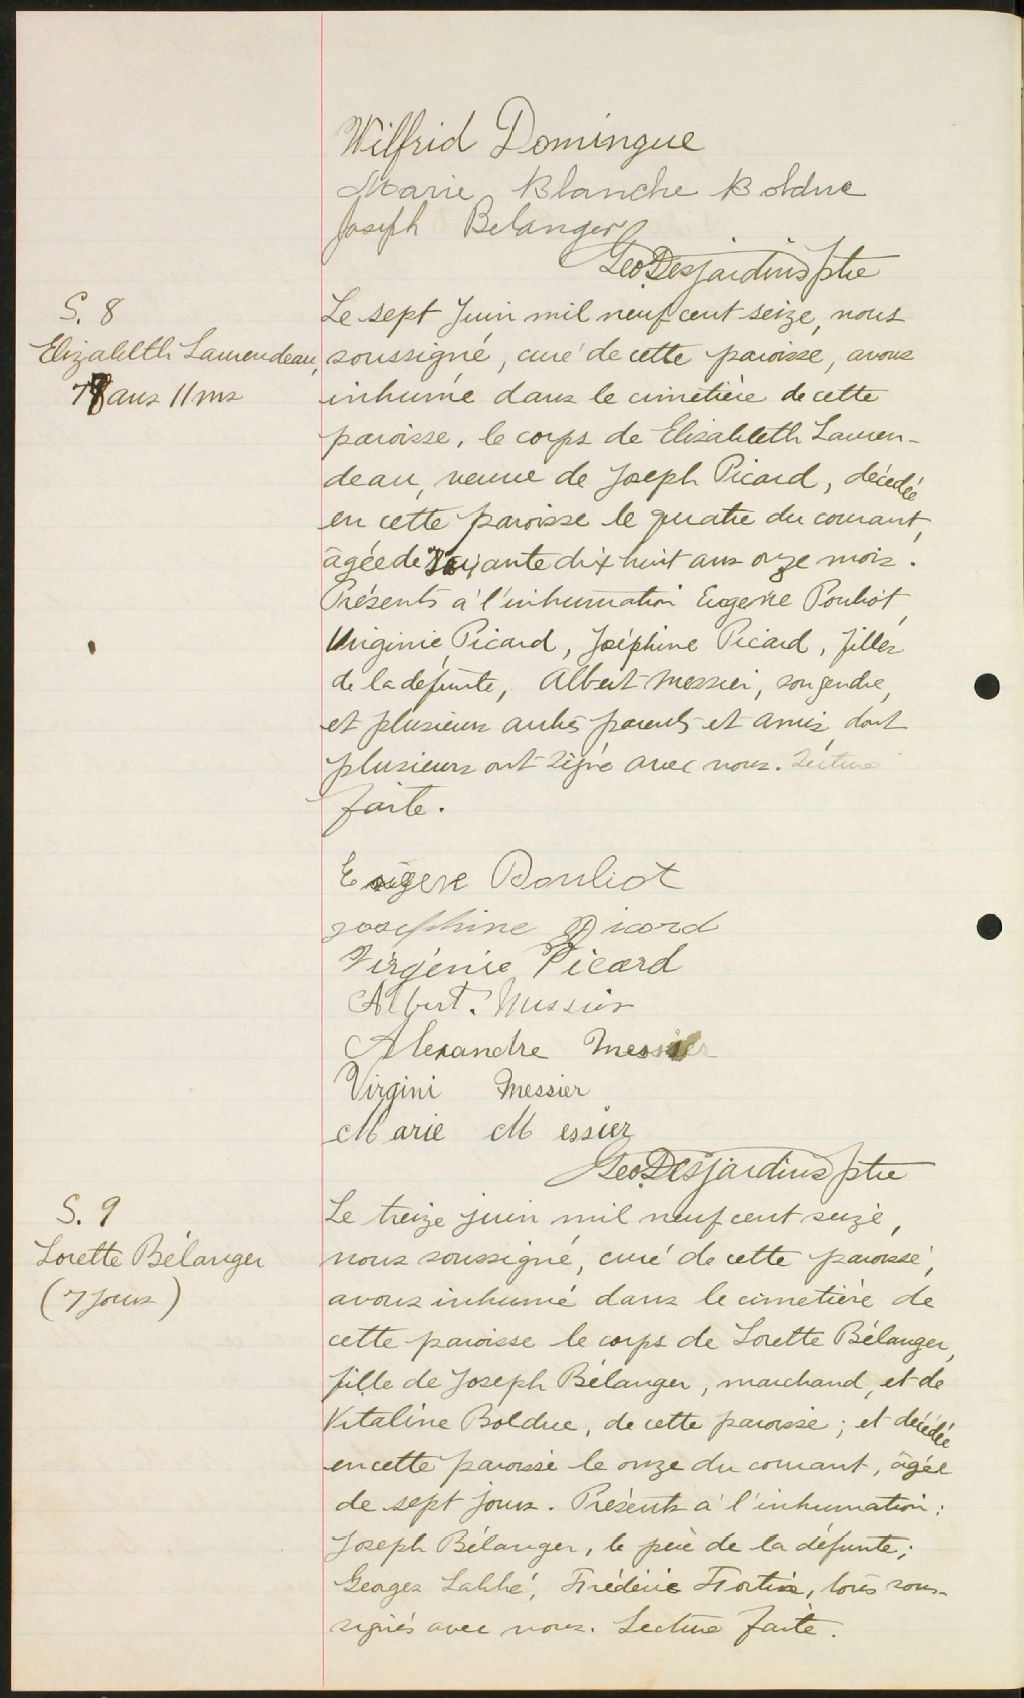 Wilfrid Domingue
Marie Blanche Bolduc
Joseph Belanger
Geo. Desjardins ptre
S. 8
Elizabeth Laurendeau,
78 ans 11 ms
Le sept Juin mil neuf cent seize, nous
soussigné, curé de cette paroisse, avons
inhumé dans le cimetière de cette
paroisse, le corps de Elizabeth Lauren-
deau, veuve de Joseph Picard, décédée
en cette paroisse le quatre du courant,
âgée de soixante dix huit ans onze mois.
Présents à l'inhumation Eugène Pouliot,
Virginie Picard, Joséphine Picard, filles
de la défunte, Albert Messier, son gendre,
et plusieurs autres parents et amis dont
plusieurs ont signé avec nous. Lecture
faite.
Eugene Pouliot
Josephine Picard
Virginie Picard
Albert. Messier
Alexandre Messier
Virgini Messier
Marie Messier
Geo. Desjardins ptre
S. 9
Lorette Bélanger
(7 jours)
Le treize juin mil neuf cent seize,
nous soussigné, curé de cette paroisse,
avons inhumé dans le cimetière de
cette paroisse le corps de Lorette Bélanger,
fille de Joseph Bélanger, marchand, et de
Vitaline Bolduc, de cette paroisse; et décédée
en cette paroisse le onze du courant, âgée
de sept jours. Présents à l'inhumation:
Joseph Bélanger, le père de la défunte;
Georges Labbé, Frédéric Fortin, tous sous-
signés avec nous. Lecture faite.